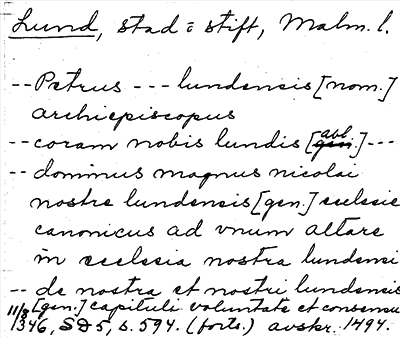 Lund, stad o stift, Malm. l.
-- Petrus --- lundensis [nom.]
archiepiscopus
-- coram nobis lundis [gen. abl.] ---
-- dominus magnus nicolai
nostre lundensis [gen.] ecclesie
canonicus ad vnum altare
in ecclesia nostra lundensi
-- de nostra et nostri lundensis
[gen.] capituli voluntate et consensu
11/8 1346, SD 5, s. 594. (forts.) avskr. 1494.